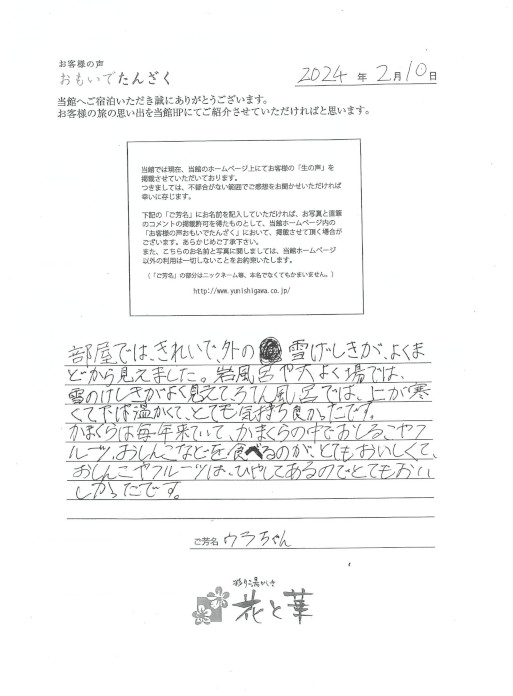 お客様の声
おもいでたんざく
2024 年 2月10日
当館へご宿泊いただき誠にありがとうございます。
お客様の旅の思い出を当館HPにてご紹介させていただければと思います。
当館では現在、当館のホームページ上にてお客様の「生の声」を
掲載させていただいております。
つきましては、不都合がない範囲でご感想をお聞かせいただければ
幸いに存じます。
下記の「ご芳名」にお名前を記入していただければ、お写真と直筆
のコメントの掲載許可を得たものとして、当館ホームページ内の
「お客様の声おもいでたんざく」において、掲載させて頂く場合が
ございます。あらかじめご了承下さい。
また、こちらのお名前と写真に関しましては、当館ホームページ
以外の利用は一切しないことをお約束いたします。
(「ご芳名」の部分はニックネーム等、本名でなくてもかまいません。)
http://www.yunishigawa.co.jp/
部屋では、きれいで、外の 雪げしきが、よくま
どから見えました。岩風呂や大よく場では、
雪のけしきがよく見えてろてん風呂では、上が寒
くて下は温かくて、とても気持ち良かったです。
かまくらは毎年来ていて、かまくらの中でおしるこやフ
ルーツ、おしんこなどを食べるのが、とてもおいしくて、
おしんこやフルーツは、ひやしてあるのでとてもおい
しかったです。
ご芳名 ウラちゃん
彩り湯かしき
花と華